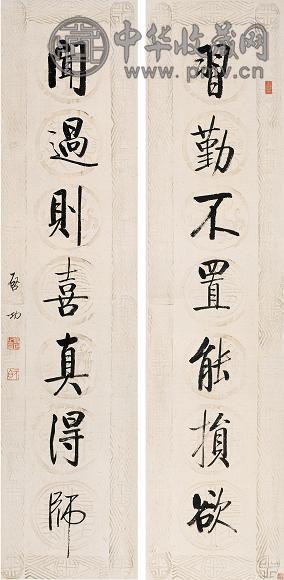 習勤不置能損欲
聞過則喜真得師
啟功
中华收藏网